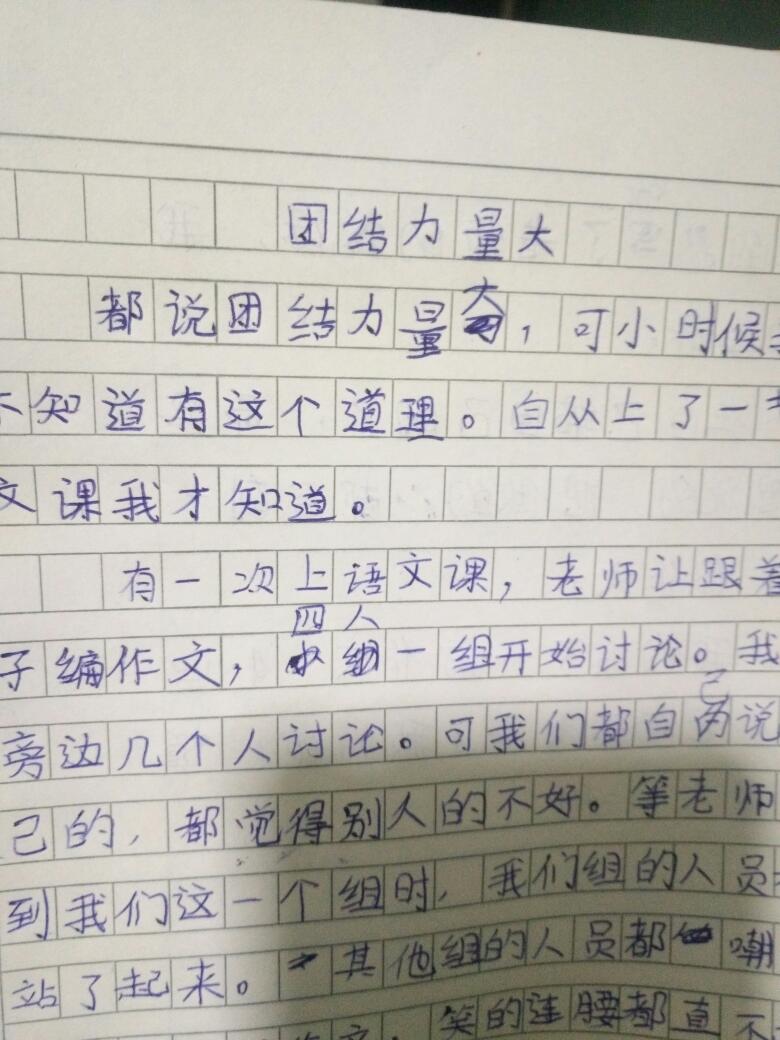 团结力量大
都说团结力量大，可小时候
不知道有这个道理。自从上了一
文课我才知道。
有一次上语文课，老师让跟着
子编作文，四人一组开始讨论。我
旁边几个人讨论。可我们都自己说
己的，都觉得别人的不好。等老师
到我们这一个组时，我们组的人员
站了起来。其他组的人员都嘲
笑的连腰都直不